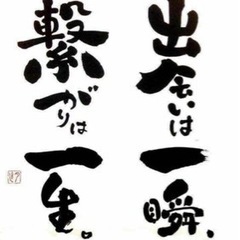 出会いは
一瞬、
繋がりは
一生。